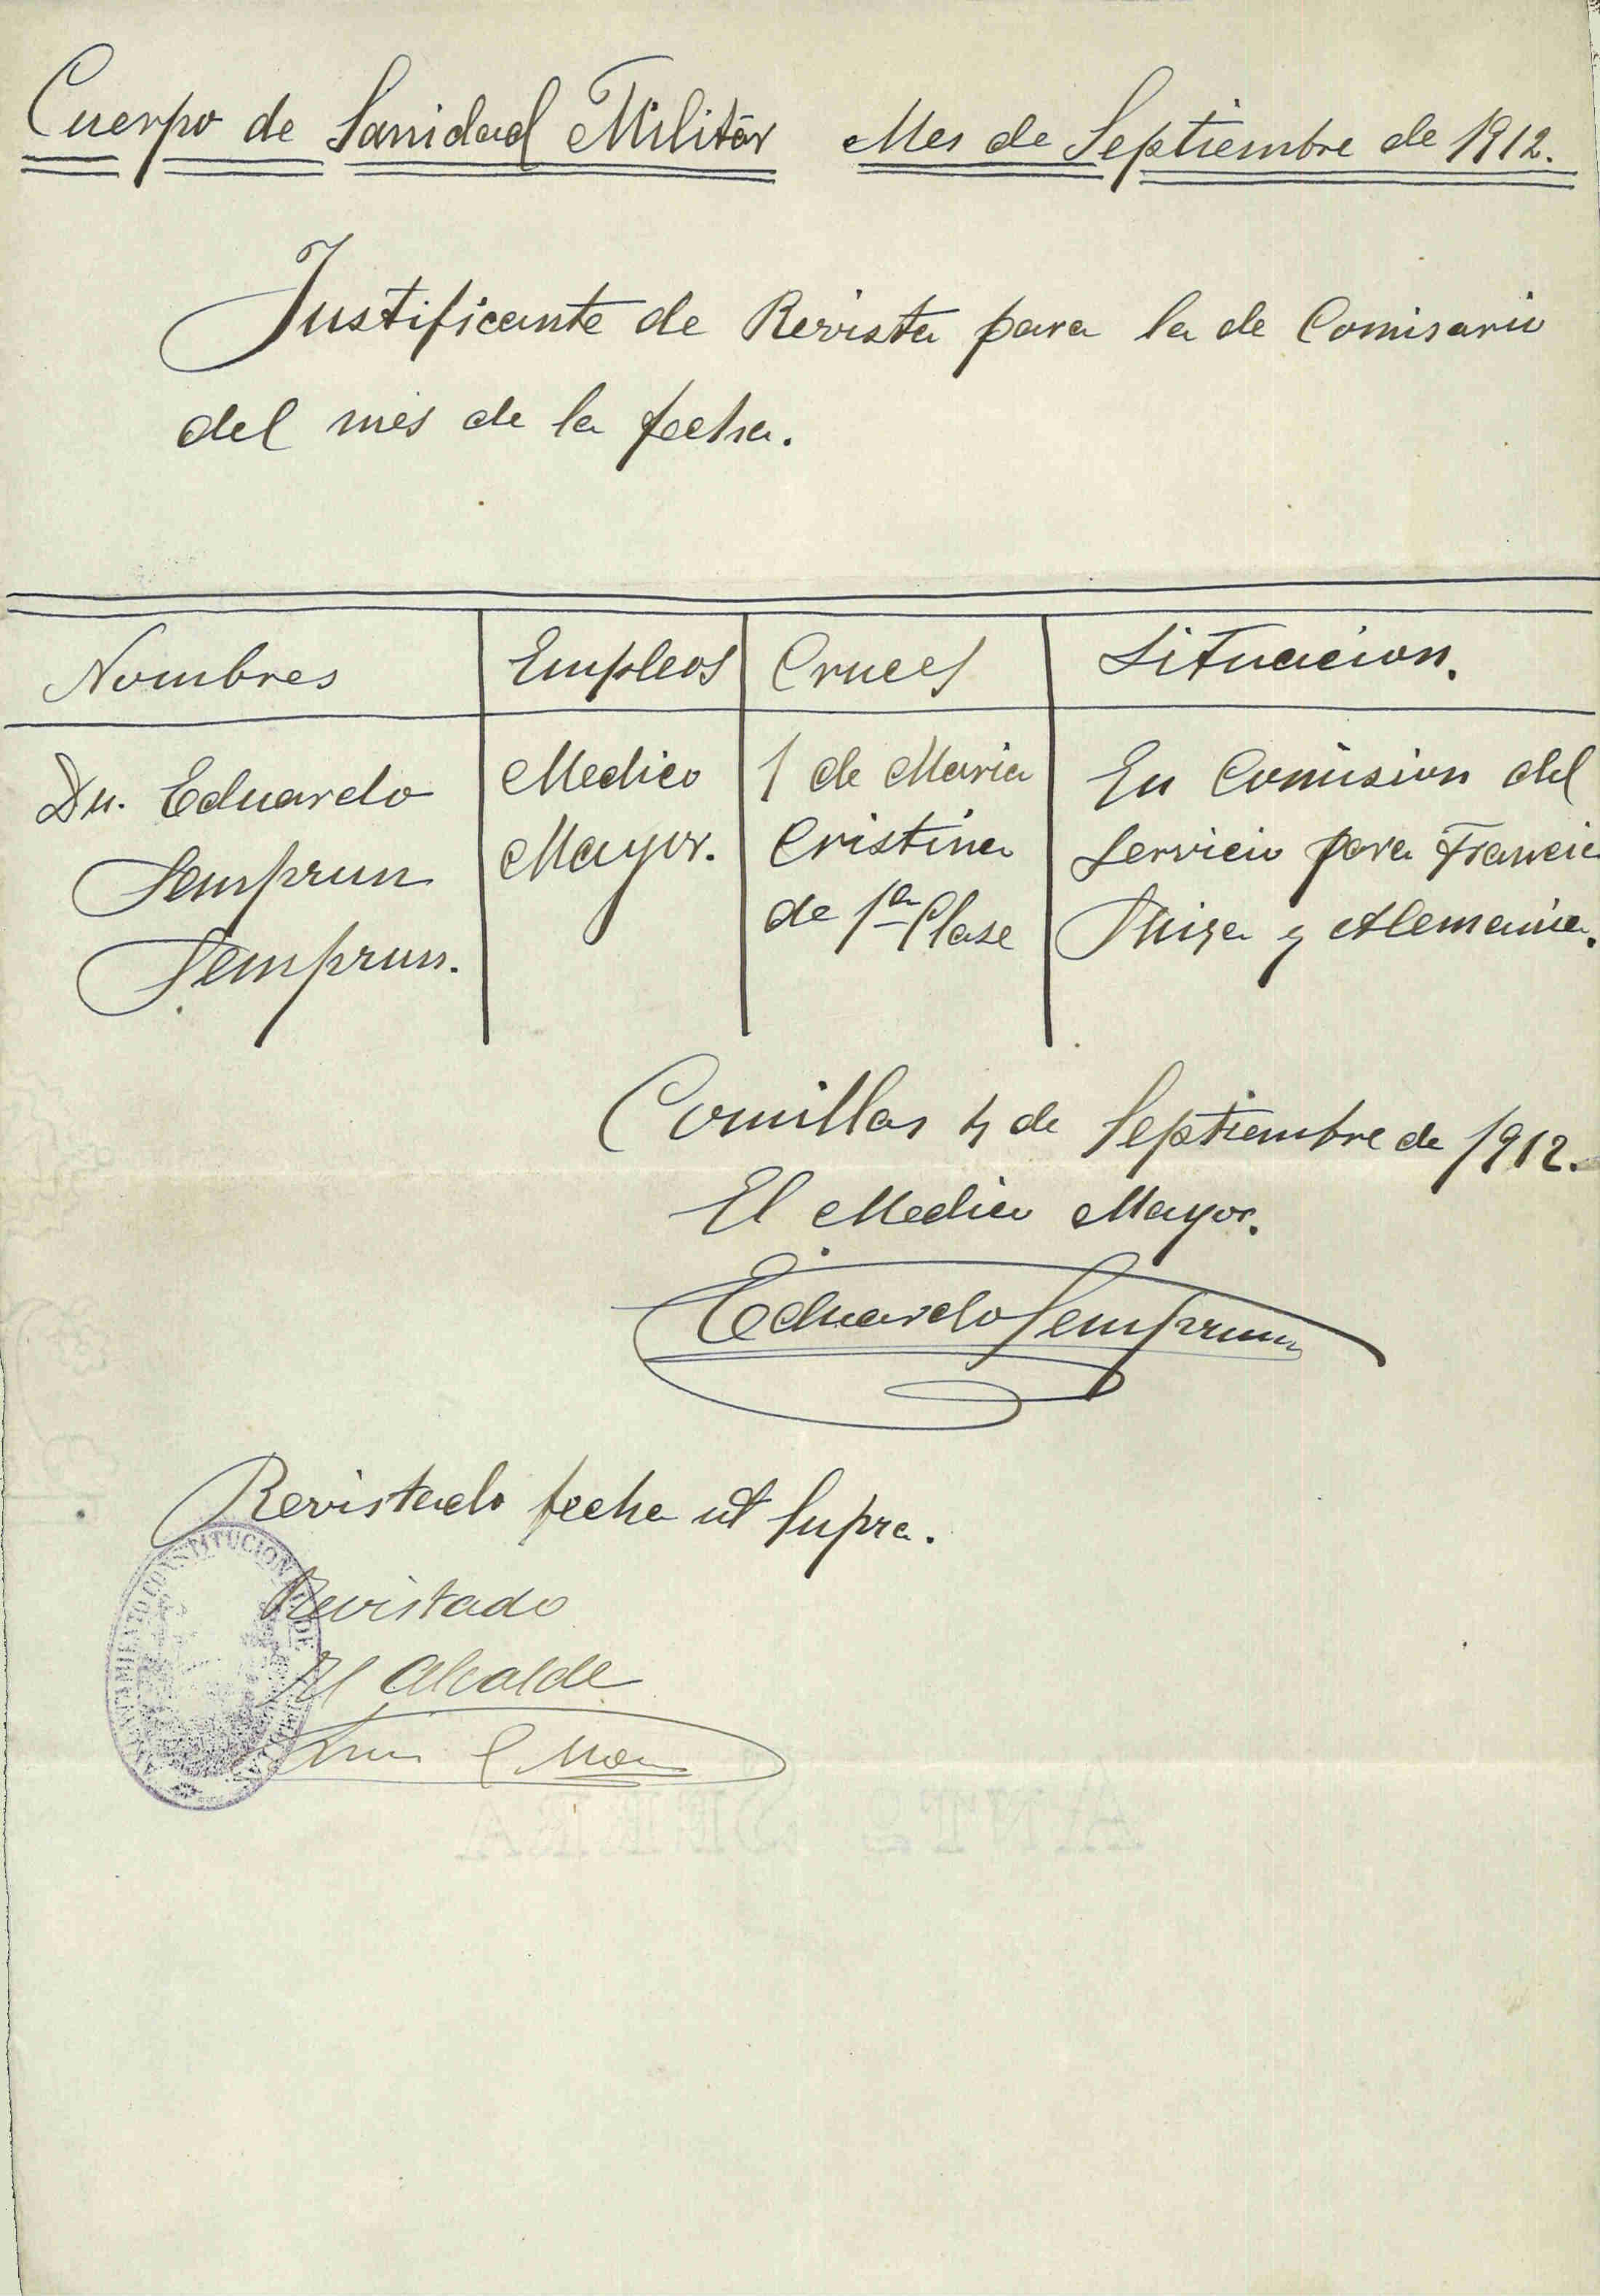 Cuerpo de Sanidad Militar Mes de Septiembre de 1912.
Justificante de Revista para la de Comisario
del mes de la fecha.
Nombres Empleos Cruces Situacion.
Dn. Eduardo Medico 1 de Maria En Comision del
Semprun Mayor. Cristina Servicio para Francia
Semprun. de 1ª Clase Suiza y Alemania.
Comillas 4 de Septiembre de 1912.
El Medico Mayor.
Eduardo Semprun
Revistado fecha ut supra.
Revistado
El Alcalde
AYUNTAMIENTO CONSTITUCIONAL DE